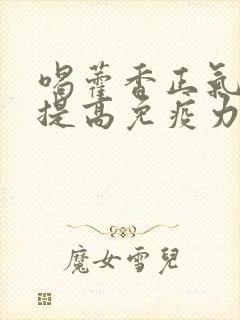 喝藿香正氣
提高免疫力
魔女雪兒